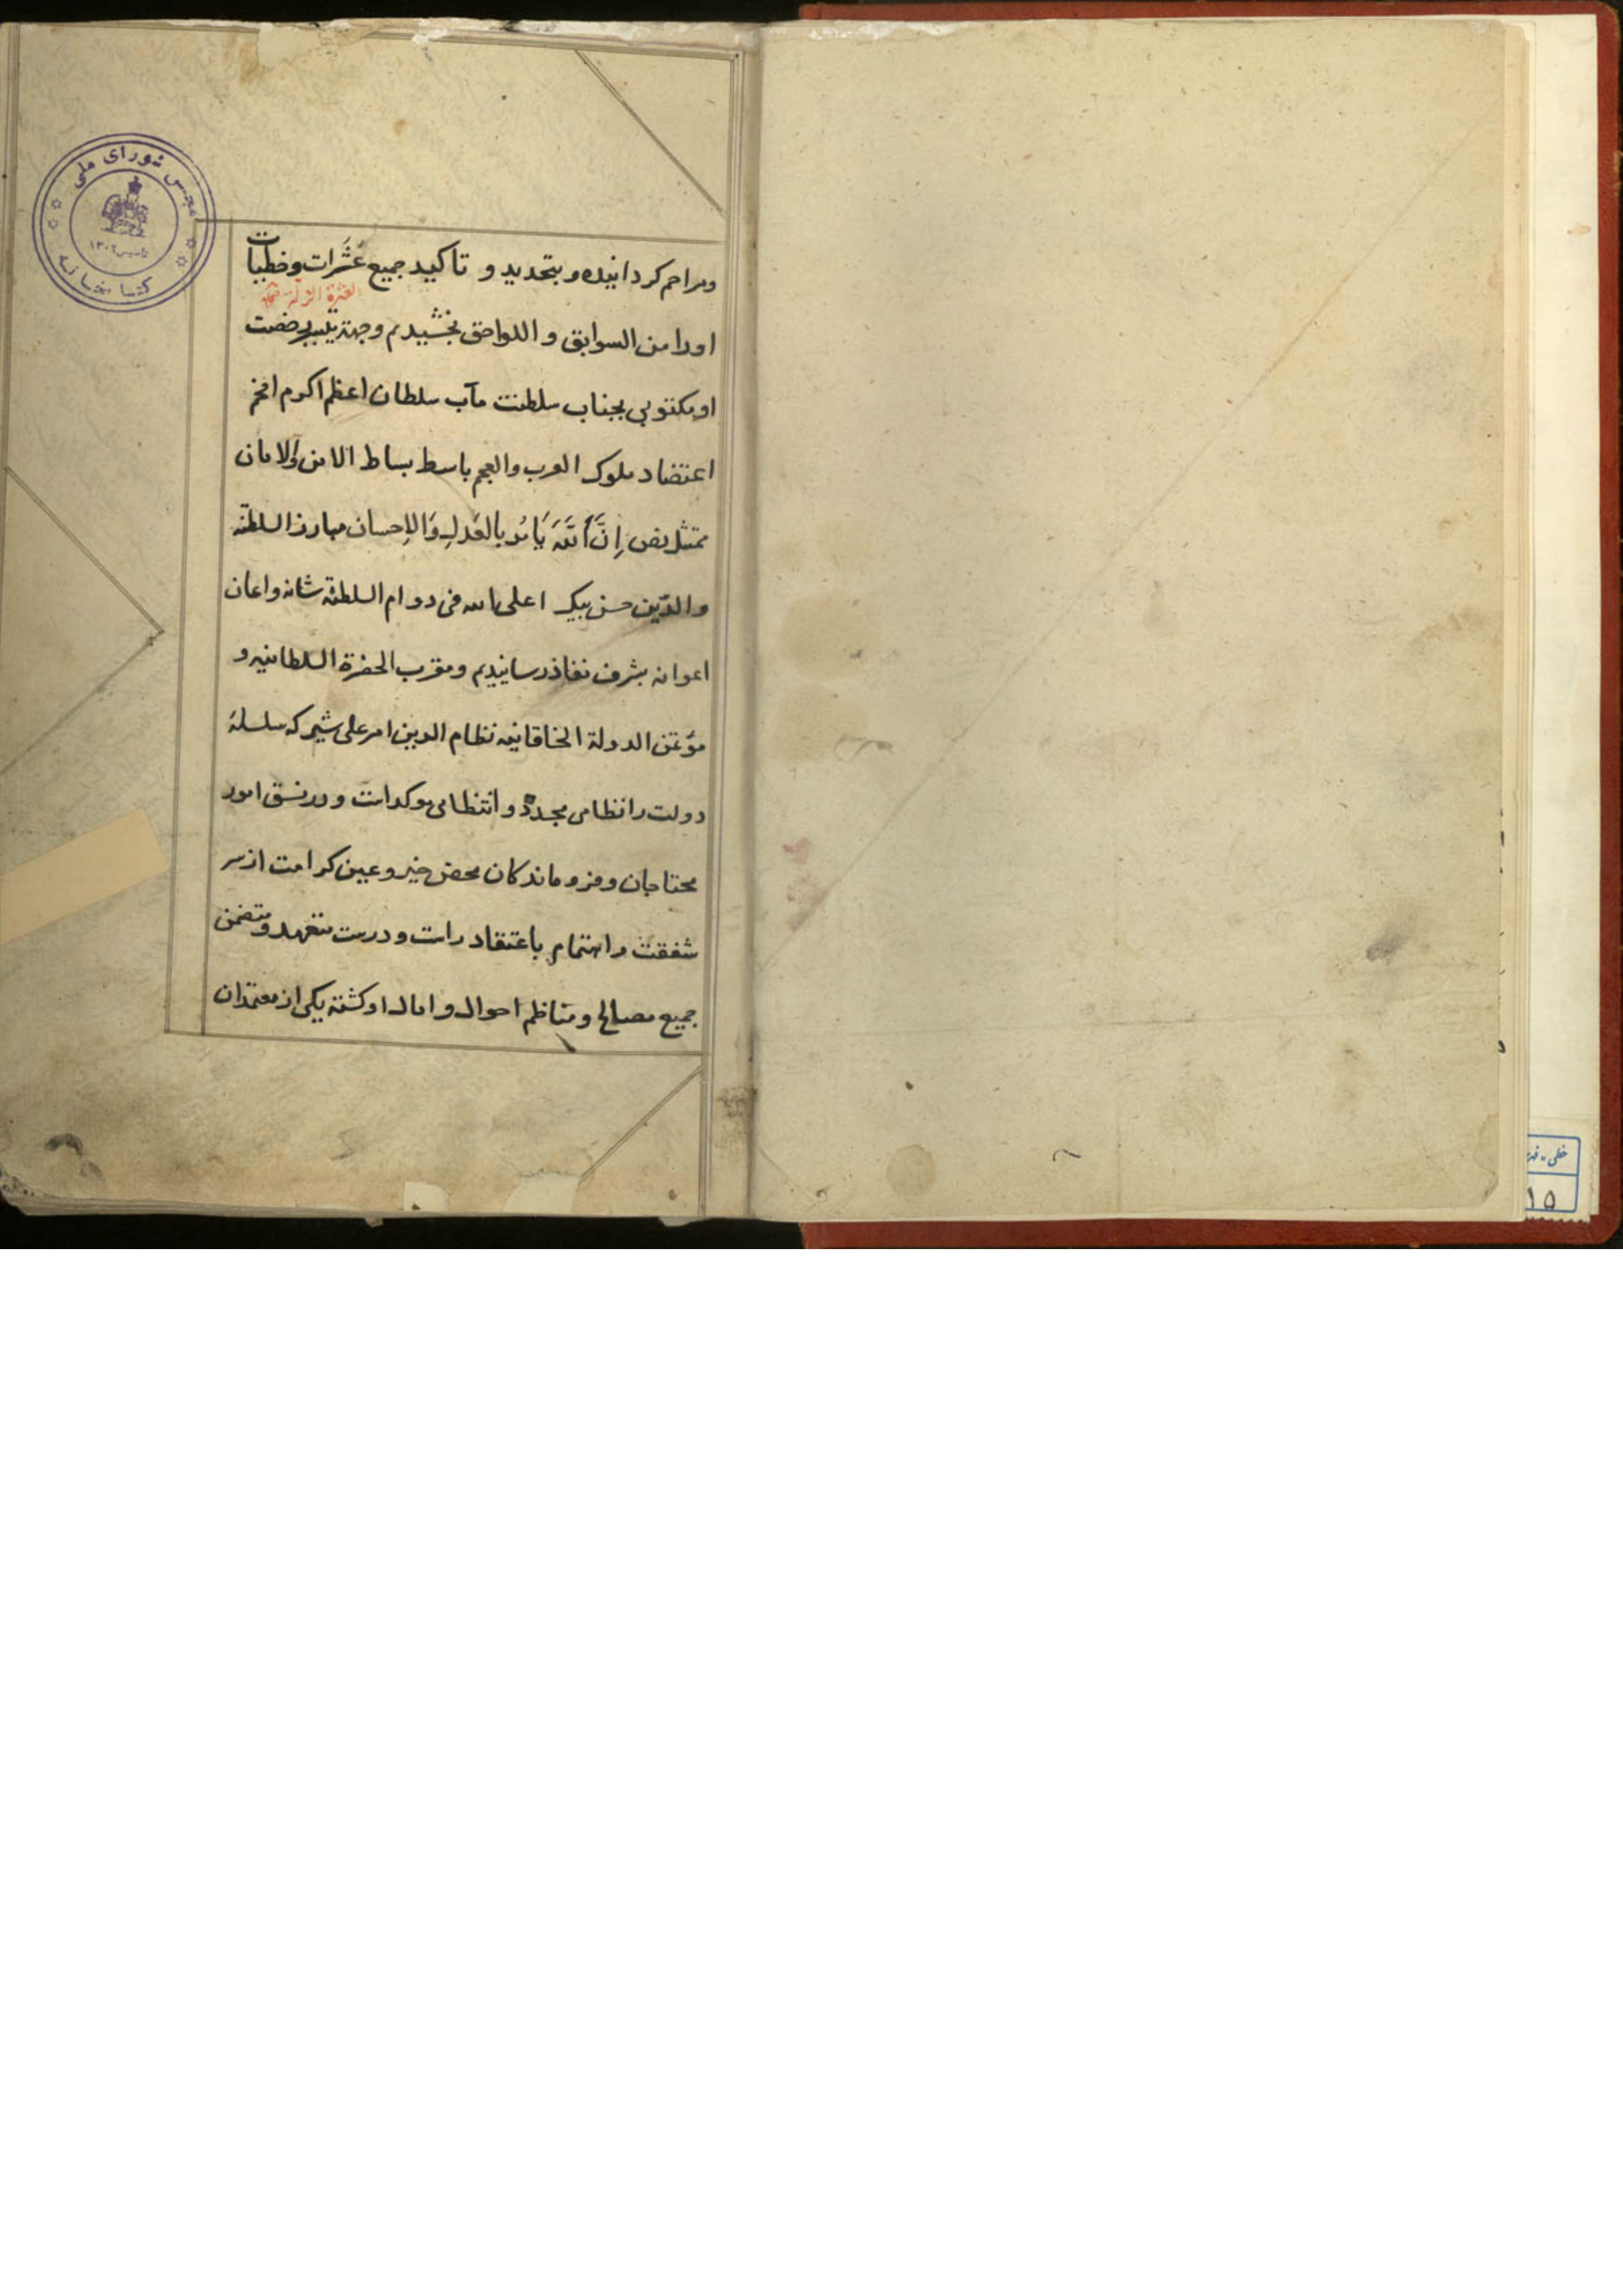 ومراحم کردانیده و بتجدید و تاکید جمیع عَثَرات و خطیات
العثرة الزلة
اورا من السوابق و اللواحق بخشیدیم وجهة رخصت
او مکتوبی بجناب سلطنت مآب سلطان اعظم اکرم افخم
اعتضاد ملوک العرب والعجم باسط بساط الامن والامان
ممتثل نص اِنَّ اللَّهَ یَأمُر بالعَدلِ وَالاِحسان مبارز السلطنة
والدّین حسن بیک اعلی الله فی دوام السلطنة شانه واعان
اعوانه بشرف نفاذ رسانیدیم ومقرب الحضرة السلطانیه و
مؤتمن الدولة الخاقانیه نظام الدین امیر علی شیر که سلسلهٔ
دولت را نظامی مجدد و انتظامی موکد است و در نسق امور
محتاجان و فروماندکان محض خیر و عین کرامت از سر
شفقت و اهتمام باعتقاد راست و درست متعهد و متضمن
جمیع مصالح و مناظم احوال و امال او کشته یکی از معتمدان
مجلس شورای ملی
تاسیس ۱۳۰۲
کتابخانه
خطی
۱۵